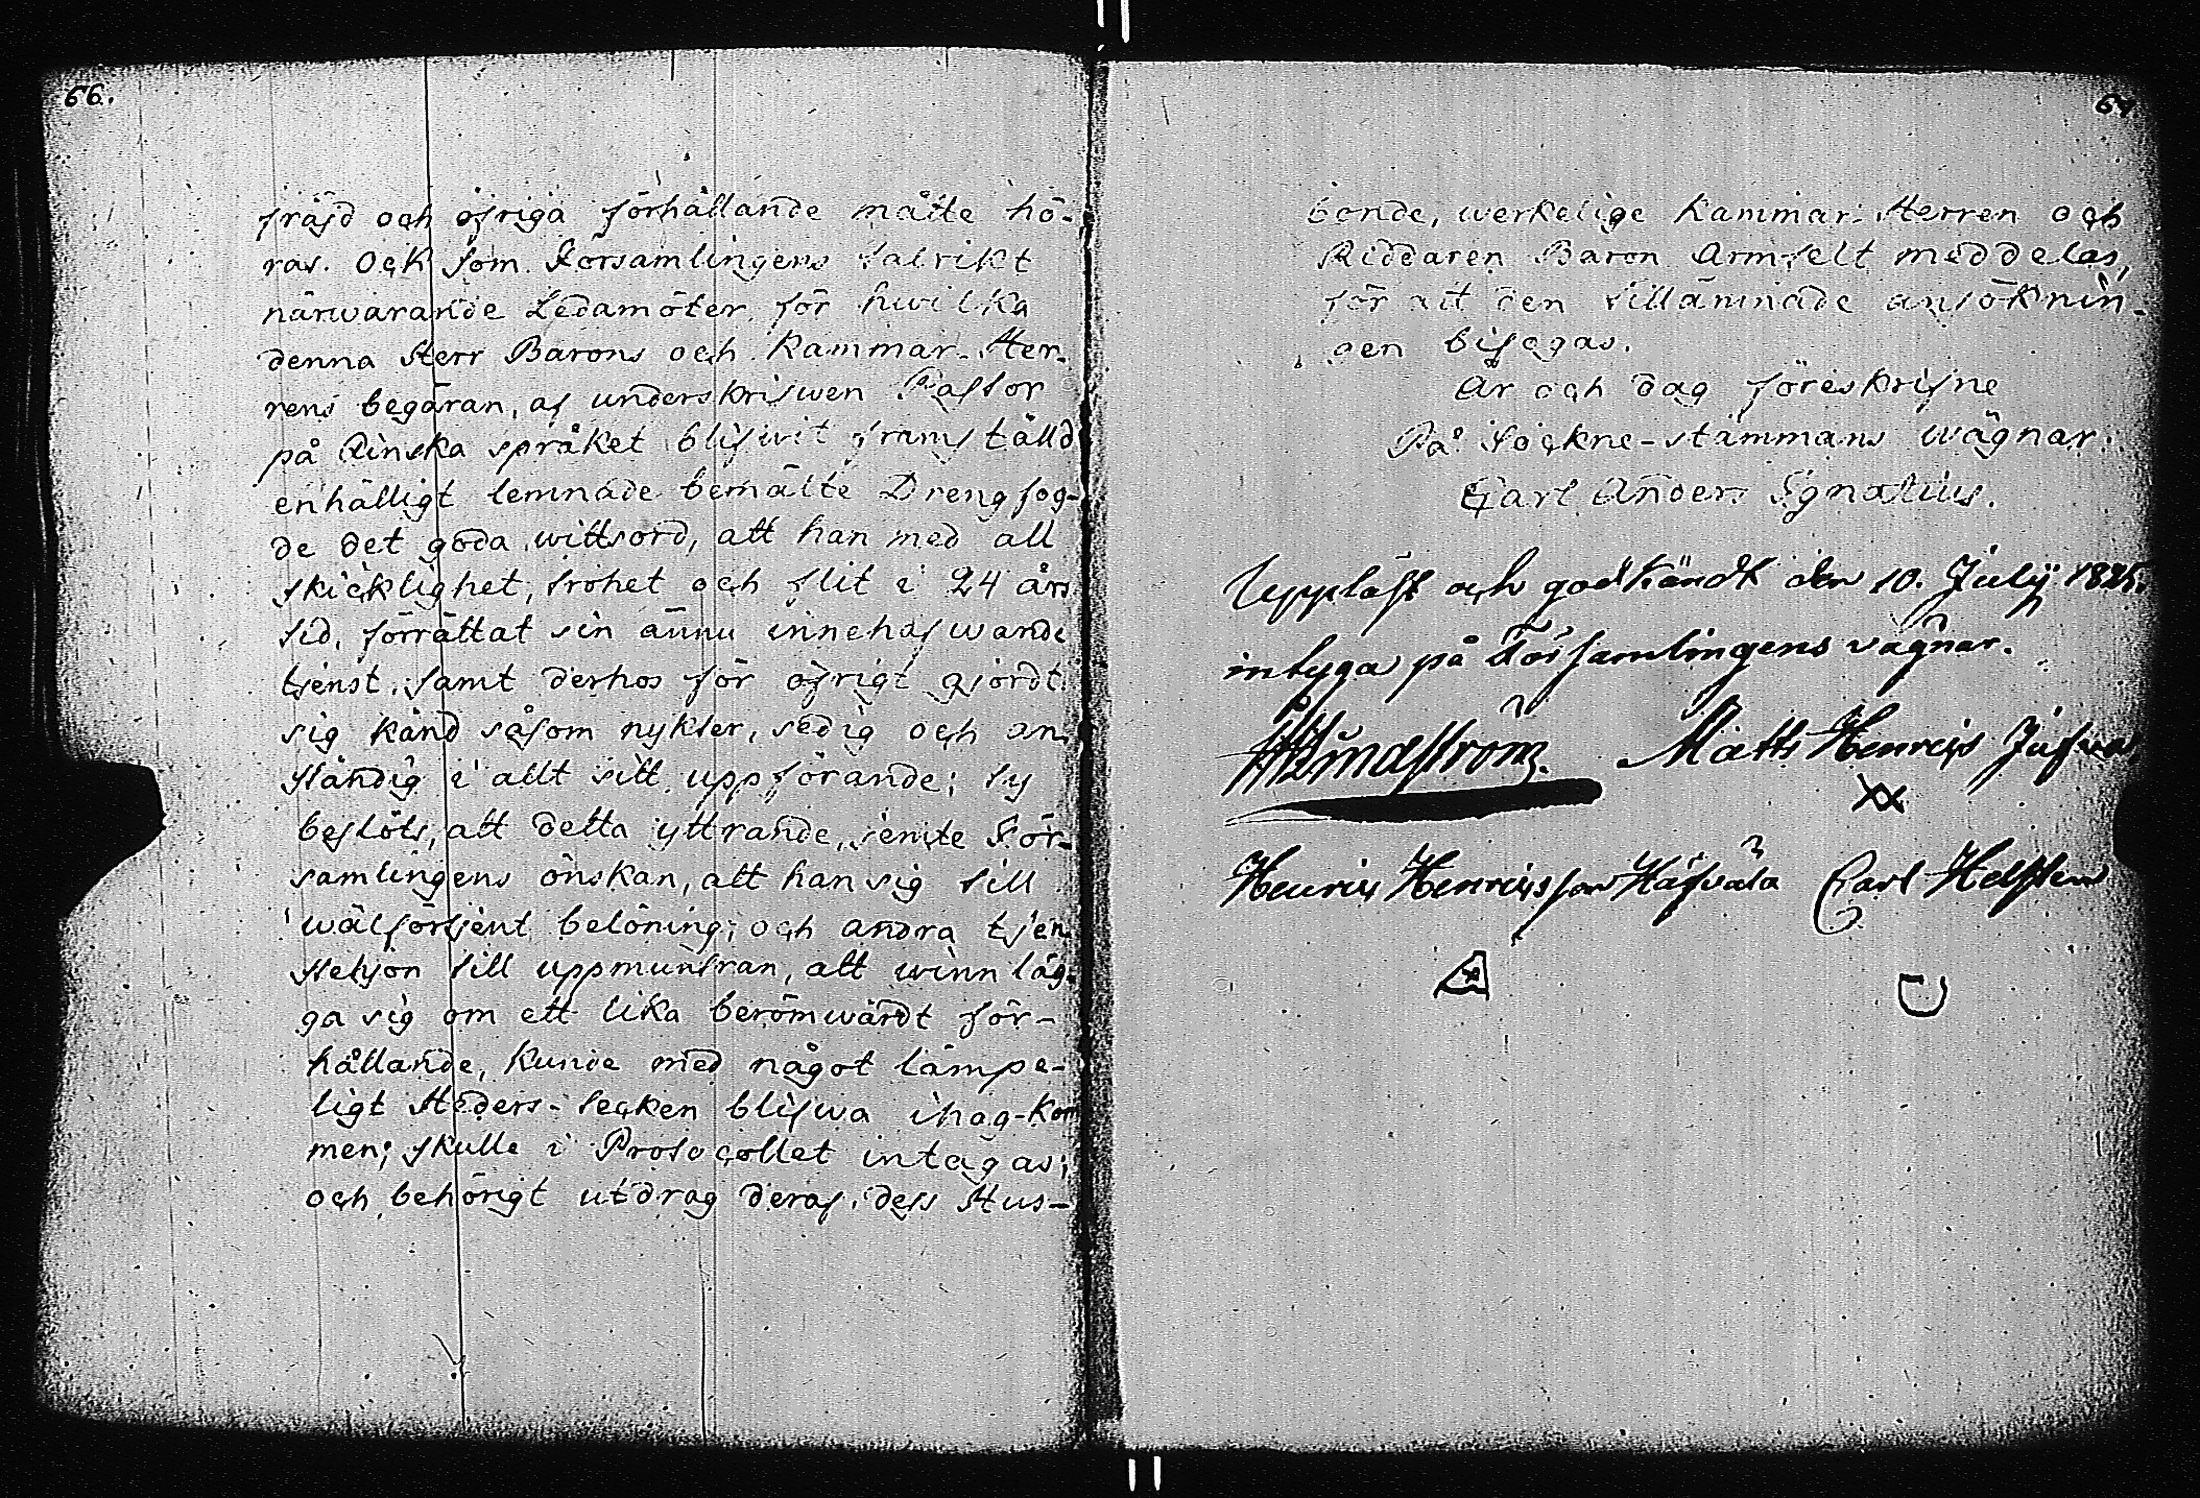 66.
fräjd och öfriga förhållande måtte hö-
ras. Och som Församlingens talrikt
närwarande Ledamöter, för hwilka
denna Herr Barons och Kammar-Her-
rens begäran, af underskrifwen Pastor
på Finska språket blifwit framställd
enhälligt lemnade bemälte Drengfog-
de det goda wittsord, att han med all
skicklighet, trohet och flit i 24 års
tid, förrättat sin ännu innehafwande
tjenst, samt derhos för öfrigt gjordt
sig känd såsom nykter, sedig och an-
ständig i allt sitt uppförande; ty
beslöts, att detta yttrande, jemte För-
samlingens önskan, att han sig till
wälförtjent belöning, och andra tjen-
stehjon till uppmuntran, att winnläg-
ga sig om ett lika berömwärdt för-
hållande, kunde med något lämpe-
ligt Heders-tecken blifwa ihog-kom
men; skulle i Protocollet intagas;
och behörigt utdrag deraf, dess Hus-
67
bonde, werkelige Kammar-Herren och
Riddaren Baron Armfelt meddelas,
för att den tillämnade ansöknin-
gen bifogas.
År och dag föreskrifne
På Sockne-stämmans wägnar.
Carl Anders Ignatius.
Uppläst och godkändt den 10. Julij 1825.
intyga på Församlingens vägnar.
Lindström. Matts Henrics
XX
Henric Henricsson Carl Helsten